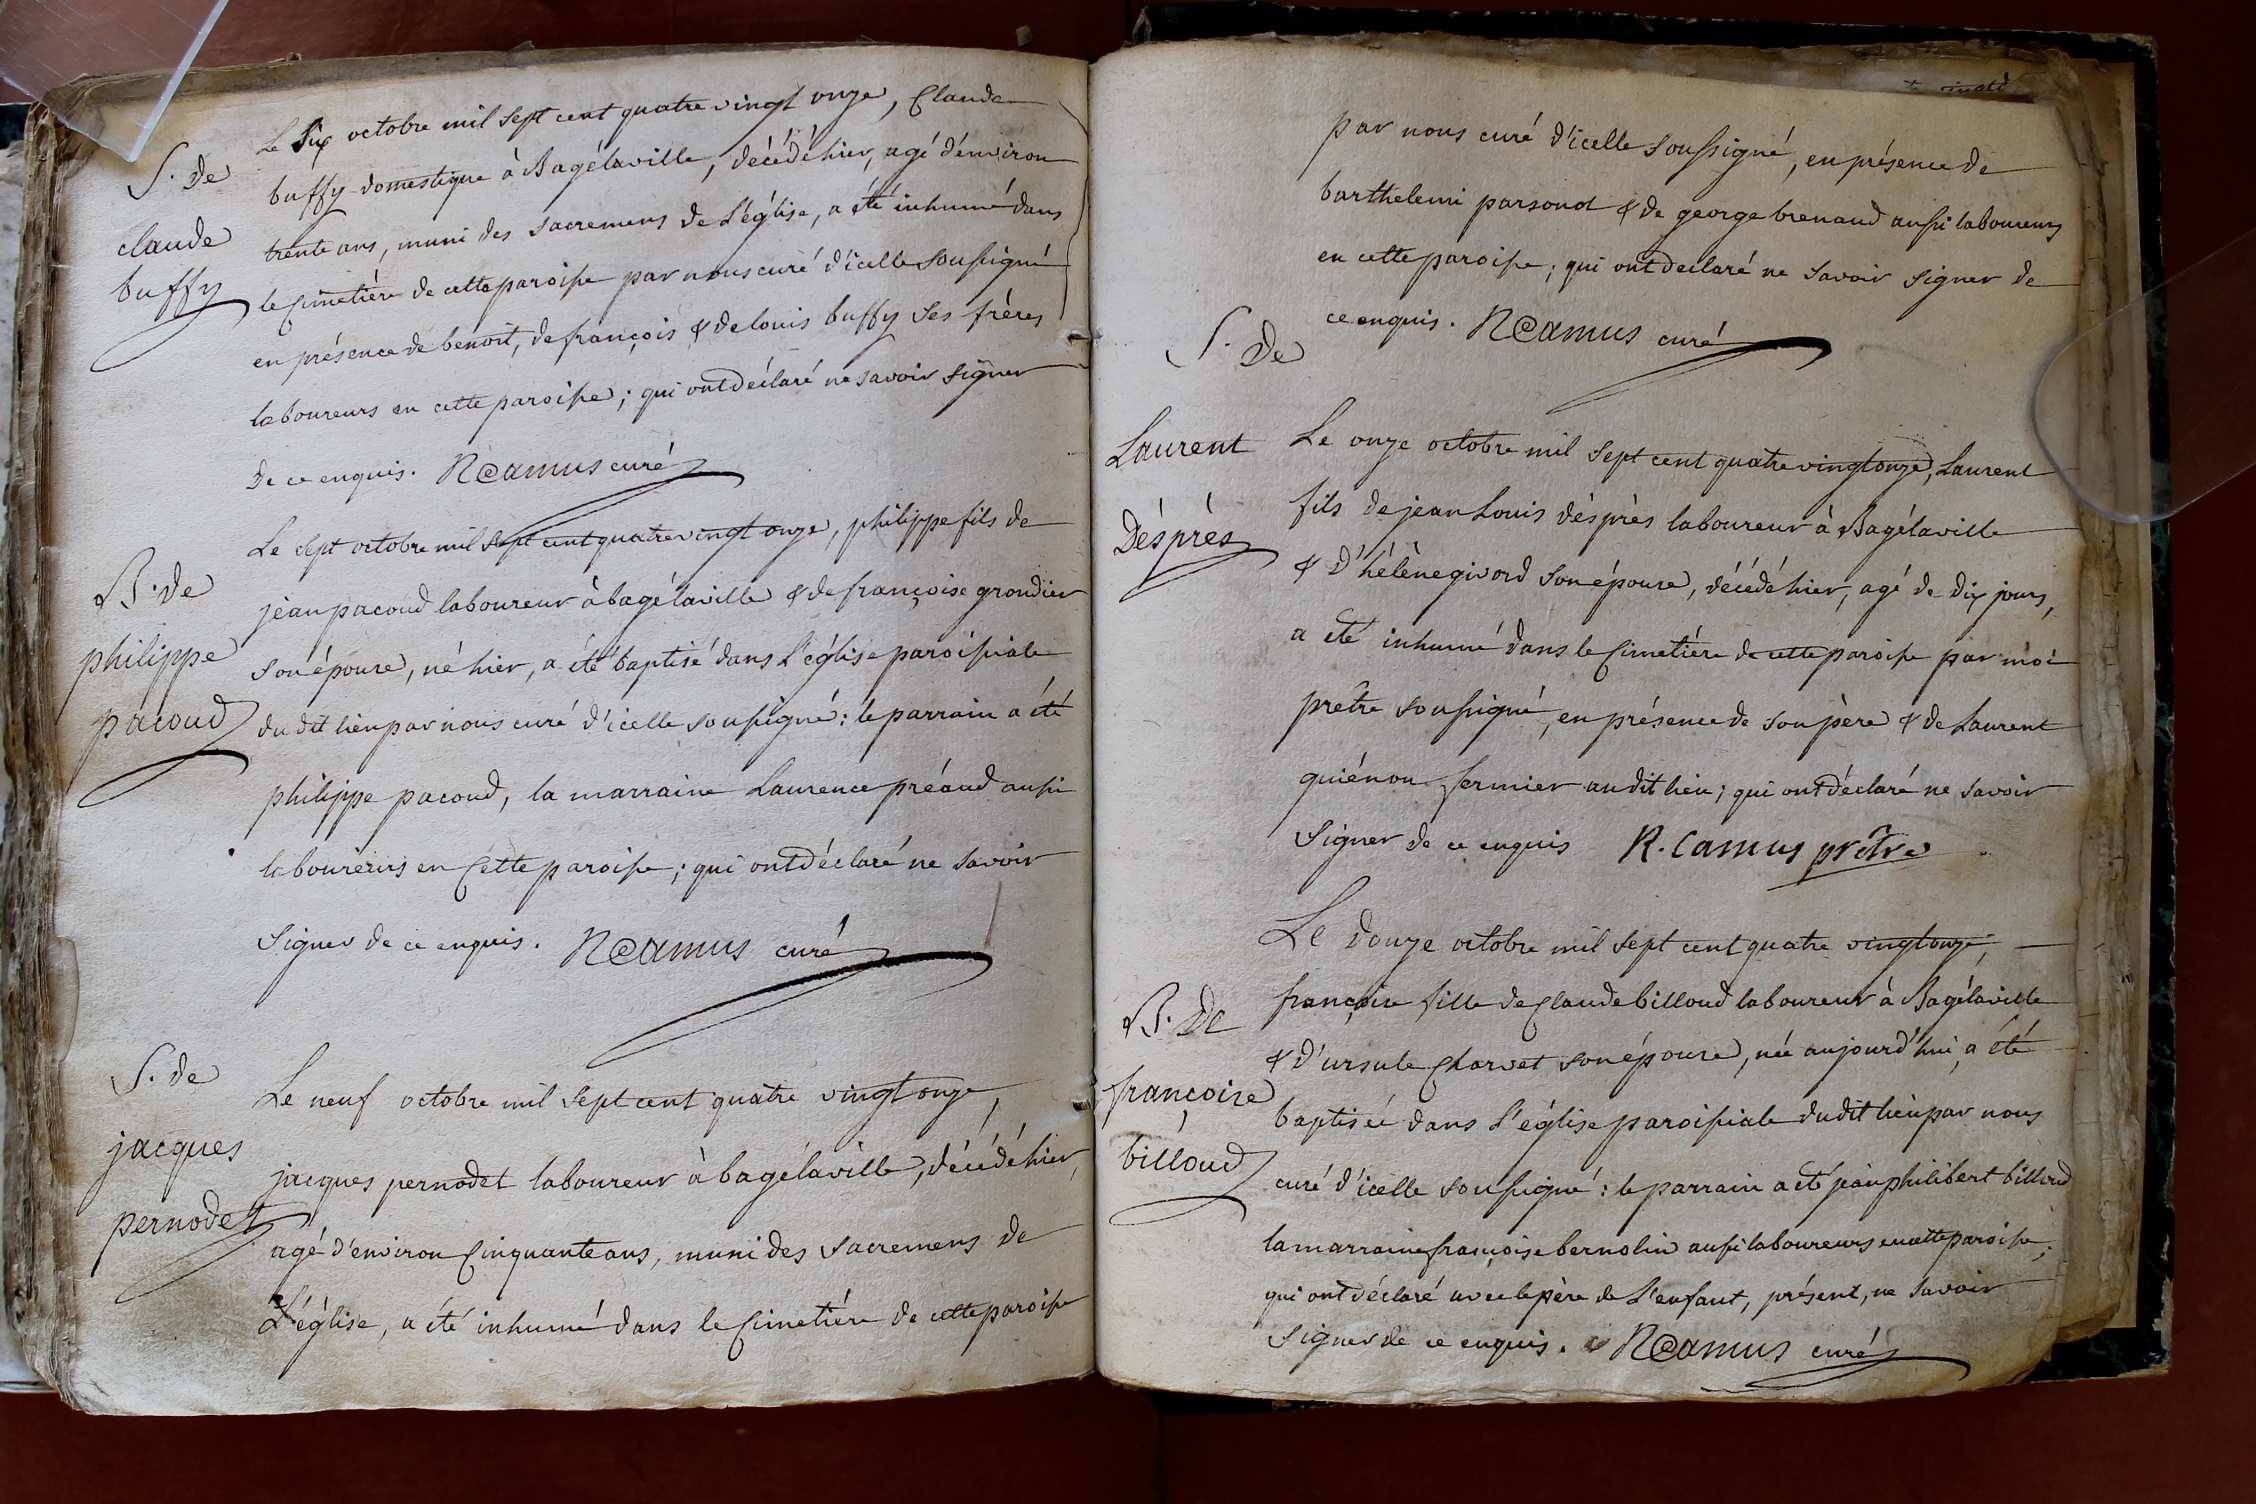 S. de
claude
buffy
Le Six octobre mil sept cent quatre vingt onze, Claude
buffy domestique à Bagélaville, décédé hier, agé d'environ
trente ans, muni des sacremens de L'église, a été inhumé dans
le Cimetière de cette paroisse par nous curé d'icelle soussigné
en présence de benoit, de françois & de louis buffy ses frères
laboureurs en cette paroisse; qui ont déclaré ne savoir signer
de ce enquis. R Camus curé
B. de
philippe
pacoud
Le Sept octobre mil sept cent quatre vingt onze, philippe fils de
jean pacoud laboureur à bagélaville & de françoise grondier
son épouse, né hier, a été baptisé dans L'église paroissiale
du dit lieu par nous curé d'icelle soussigné: le parrain a été
philippe pacoud, la marraine Laurence préaud aussi
laboureurs en Cette paroisse; qui ont déclaré ne savoir
Signer de ce enquis. R Camus curé
S. de
jacques
pernodet
Le neuf octobre mil sept cent quatre vingt onze,
jacques pernodet laboureur à bagélaville, décédé hier,
agé d'environ Cinquante ans, muni des sacremens de
L'église, a été inhumé dans le Cimetière de cette paroisse
par nous curé d'icelle soussigné, en présence de
barthelemi parsonot & de george brenaud aussi laboureurs
en cette paroisse; qui ont declaré ne savoir signer de
ce enquis. R Camus curé
S. de
Laurent
Déspres
Le onze octobre mil sept cent quatre vingt onze, Laurent
fils de jean Louis désprès laboureur à Bagélaville
& d'hélène givord son épouse, décédé hier, agé de dix jours,
a été inhumé dans le Cimetière de cette paroisse par moi
prêtre soussigné, en présence de son père & de Laurent
guiénon fermier au dit lieu; qui ont déclaré ne savoir
Signer de ce enquis R. Camus prêtre
B. de
françoise
billoud
Le douze octobre mil sept cent quatre vingt onze,
françoise fille de Claude billoud laboureur à Bagélaville
& d'ursule Charvet son épouse, née aujourd'hui, a été
baptisée dans L'église paroissiale du dit lieu par nous
curé d'icelle soussigné: le parrain a été jean philibert billoud
la marraine françoise bernolin aussi laboureurs en cette paroisse;
qui ont déclaré avec le père de L'enfant, présent, ne savoir
signer de ce enquis. R Camus curé